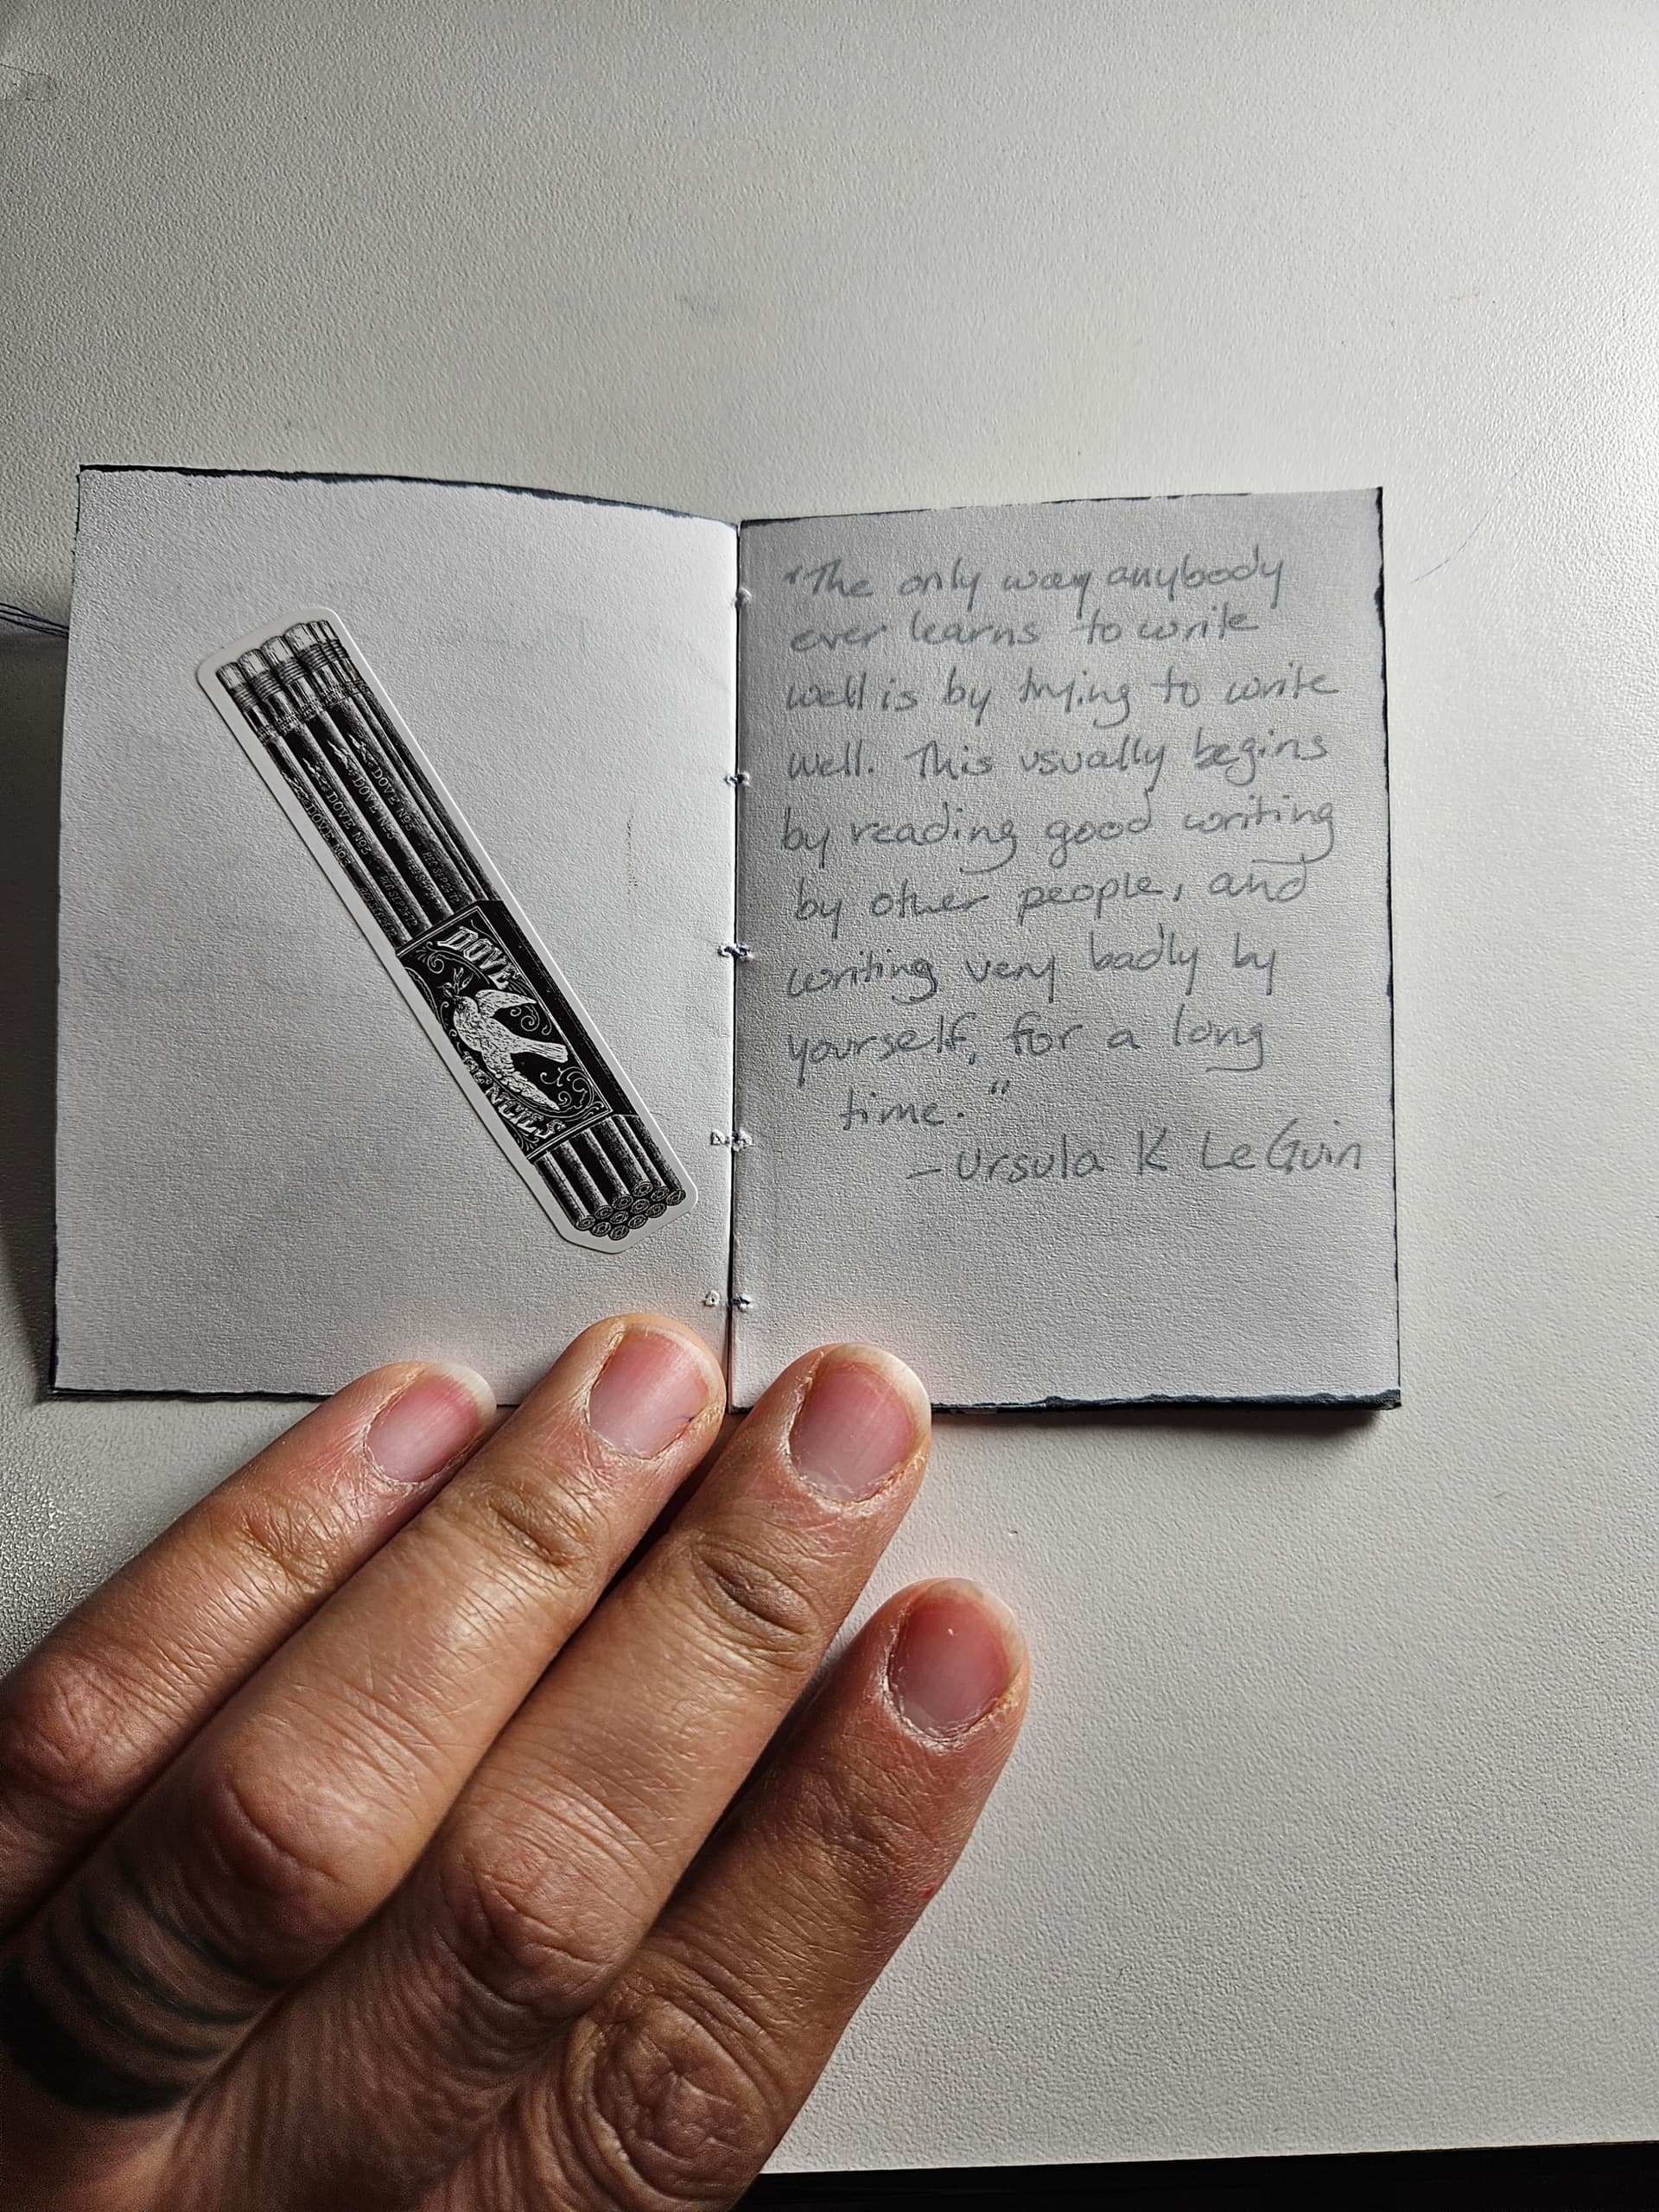 DOVE Nº3
DOVE Nº3
DOVE Nº3
DOVE Nº3
DOVE
PENCILS
"The only way anybody
ever learns to write
well is by trying to write
well. This usually begins
by reading good writing
by other people, and
writing very badly by
yourself, for a long
time."
- Ursula K LeGuin